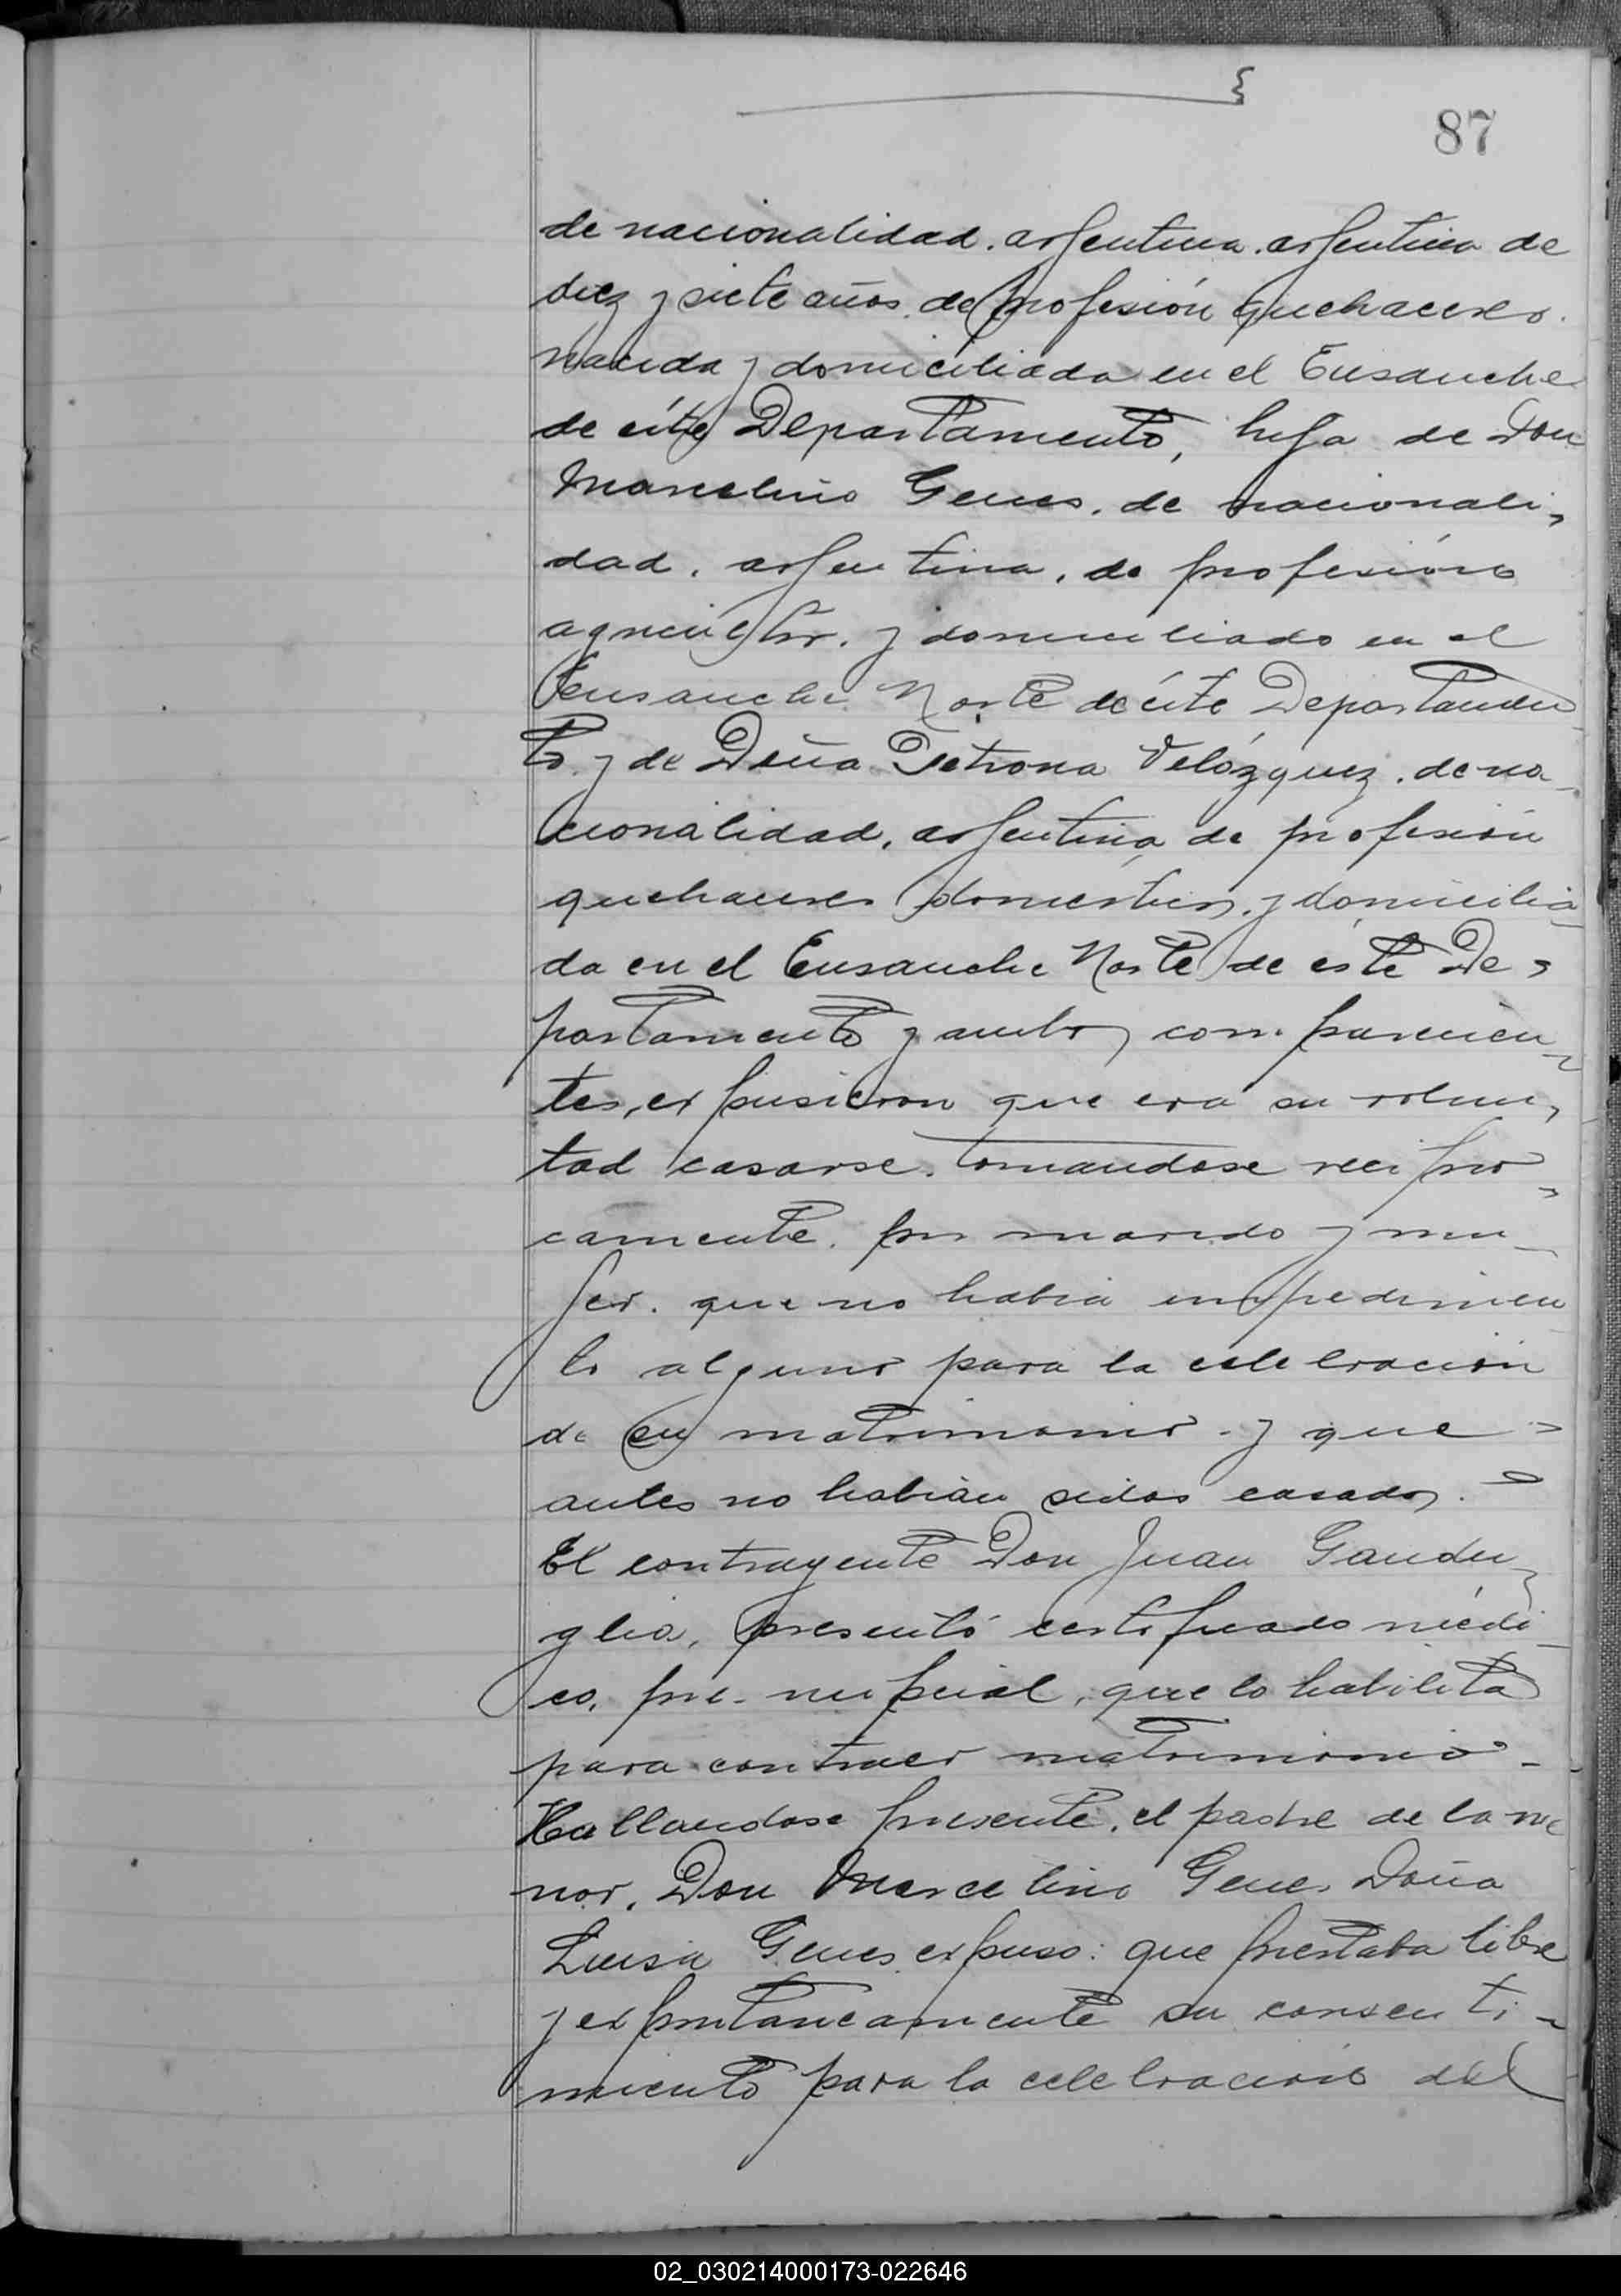 87
de nacionalidad. argentina. argentina de
diez y siete años. de profesión quehaceres.
nacida y domiciliada en el Ensanche
de éste Departamento, hija de Don
Marcelino Genes. de nacionali,
dad. argentina, de profesión
agricultor. y domiciliado en el
Ensanche Norte de éste Departamen
to. y de Doña Petrona Velázquez. de na_
cionalidad, argentina, de profesión
quehaceres domesticos. y domicilia_
da en el Ensanche Norte de éste De,
partamento y ambos comparecien_
tes, expusieron que era su volun,
tad casarse. tomandose recipro_
camente. por marido y mu_
jer. que no habia impedimen
to alguno para la celebración
de su matrimonio. y que
antes no habian sidos casados.
El contrayente Don Juan Gandu_
glia, presentó certificado médi_
co. pre-nupcial, que lo habilita
para contraer matrimonio_
Hallandose presente. el padre de la me
nor. Don Marcelino Genes Doña
Luisa Genes expuso: que prestaba libre
y expontaneamente su consenti_
miento para la celebración del
02_030214000173-022646